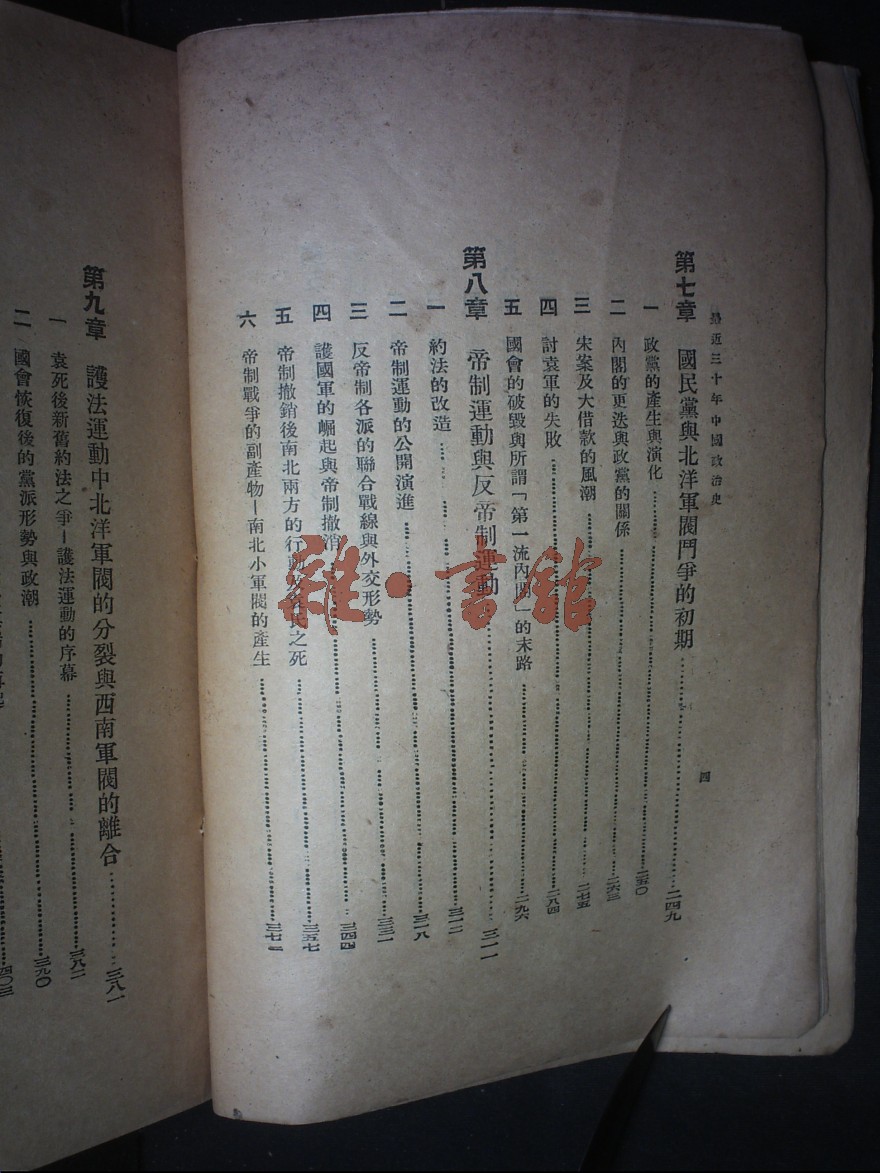 最近三十年中國政治史
四
第七章 國民黨與北洋軍閥鬥爭的初期……二四九
一 政黨的產生與演化……二五〇
二 內閣的更迭與政黨的關係……二六三
三 宋案及大借款的風潮……二七五
四 討袁軍的失敗……二八四
五 國會的破毀與所謂「第一流內閣」的末路……二九六
第八章 帝制運動與反帝制運動……三一一
一 約法的改造……三一二
二 帝制運動的公開演進……三一八
三 反帝制各派的聯合戰線與外交形勢……三三一
四 護國軍的崛起與帝制撤消……三四四
五 帝制撤銷後南北兩方的行動及袁氏之死……三五七
六 帝制戰爭的副產物—南北小軍閥的產生……三七二
第九章 護法運動中北洋軍閥的分裂與西南軍閥的離合……三八一
一 袁死後新舊約法之爭—護法運動的序幕……三八二
二 國會恢復後的黨派形勢與政潮……三九〇
四〇三
雜·書館